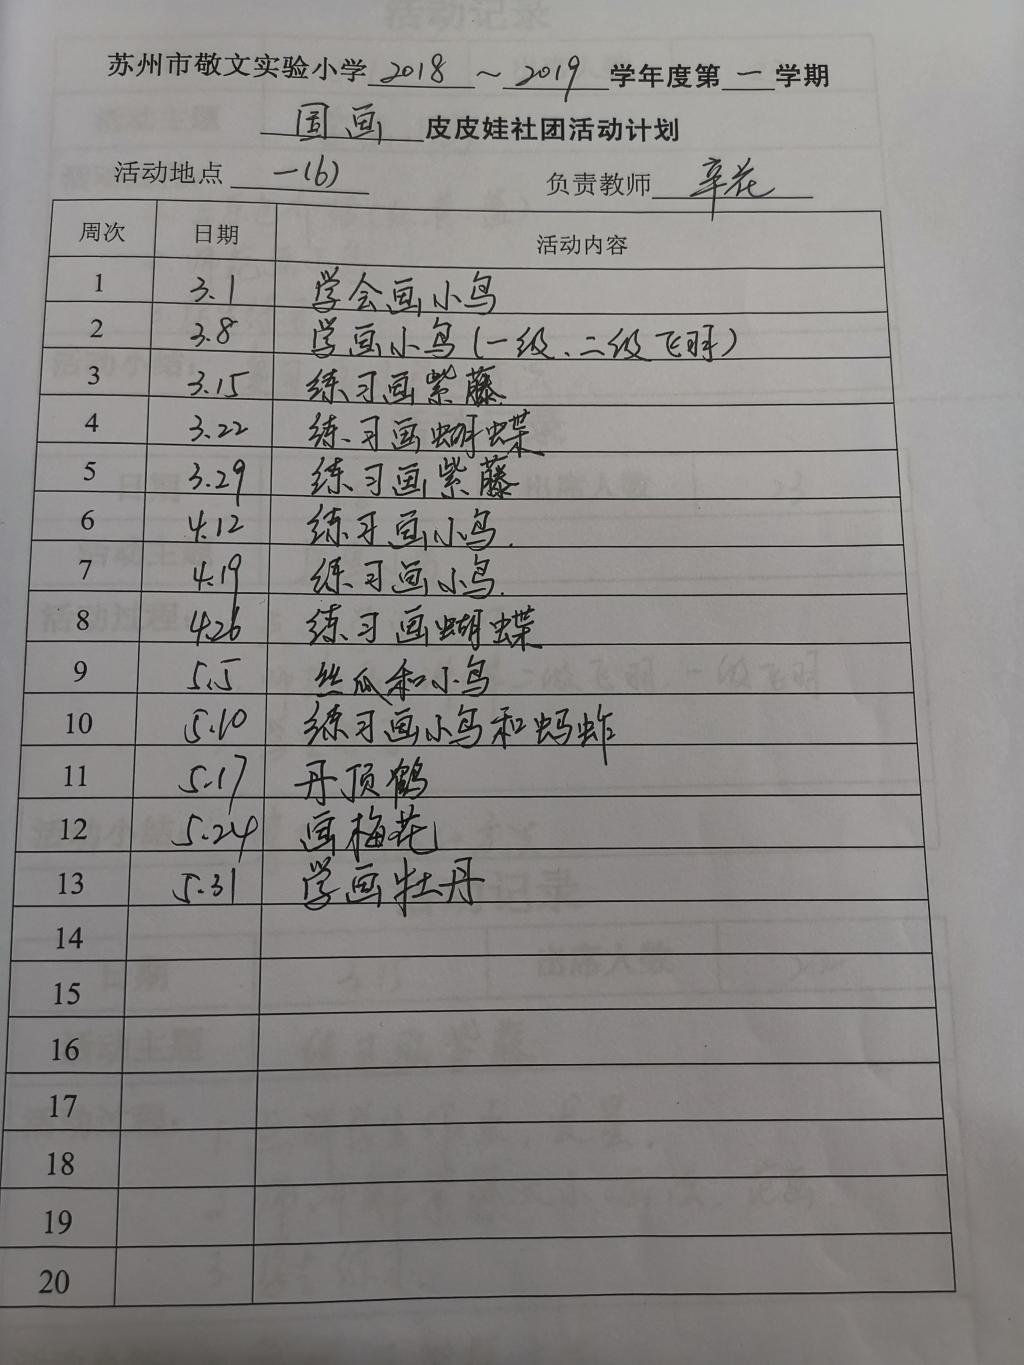 苏州市敬文实验小学 2018 ~ 2019 学年度第 一 学期
国画 皮皮娃社团活动计划
活动地点 一(6) 负责教师 辛花
周次 日期 活动内容
1 3.1 学会画小鸟
2 3.8 学画小鸟(一级、二级飞羽)
3 3.15 练习画紫藤
4 3.22 练习画蝴蝶
5 3.29 练习画紫藤
6 4.12 练习画小鸟.
7 4.19 练习画小鸟.
8 4.26 练习画蝴蝶
9 5.5 丝瓜和小鸟
10 5.10 练习画小鸟和蚂蚱
11 5.17 丹顶鹤
12 5.24 画梅花
13 5.31 学画牡丹
14
15
16
17
18
19
20